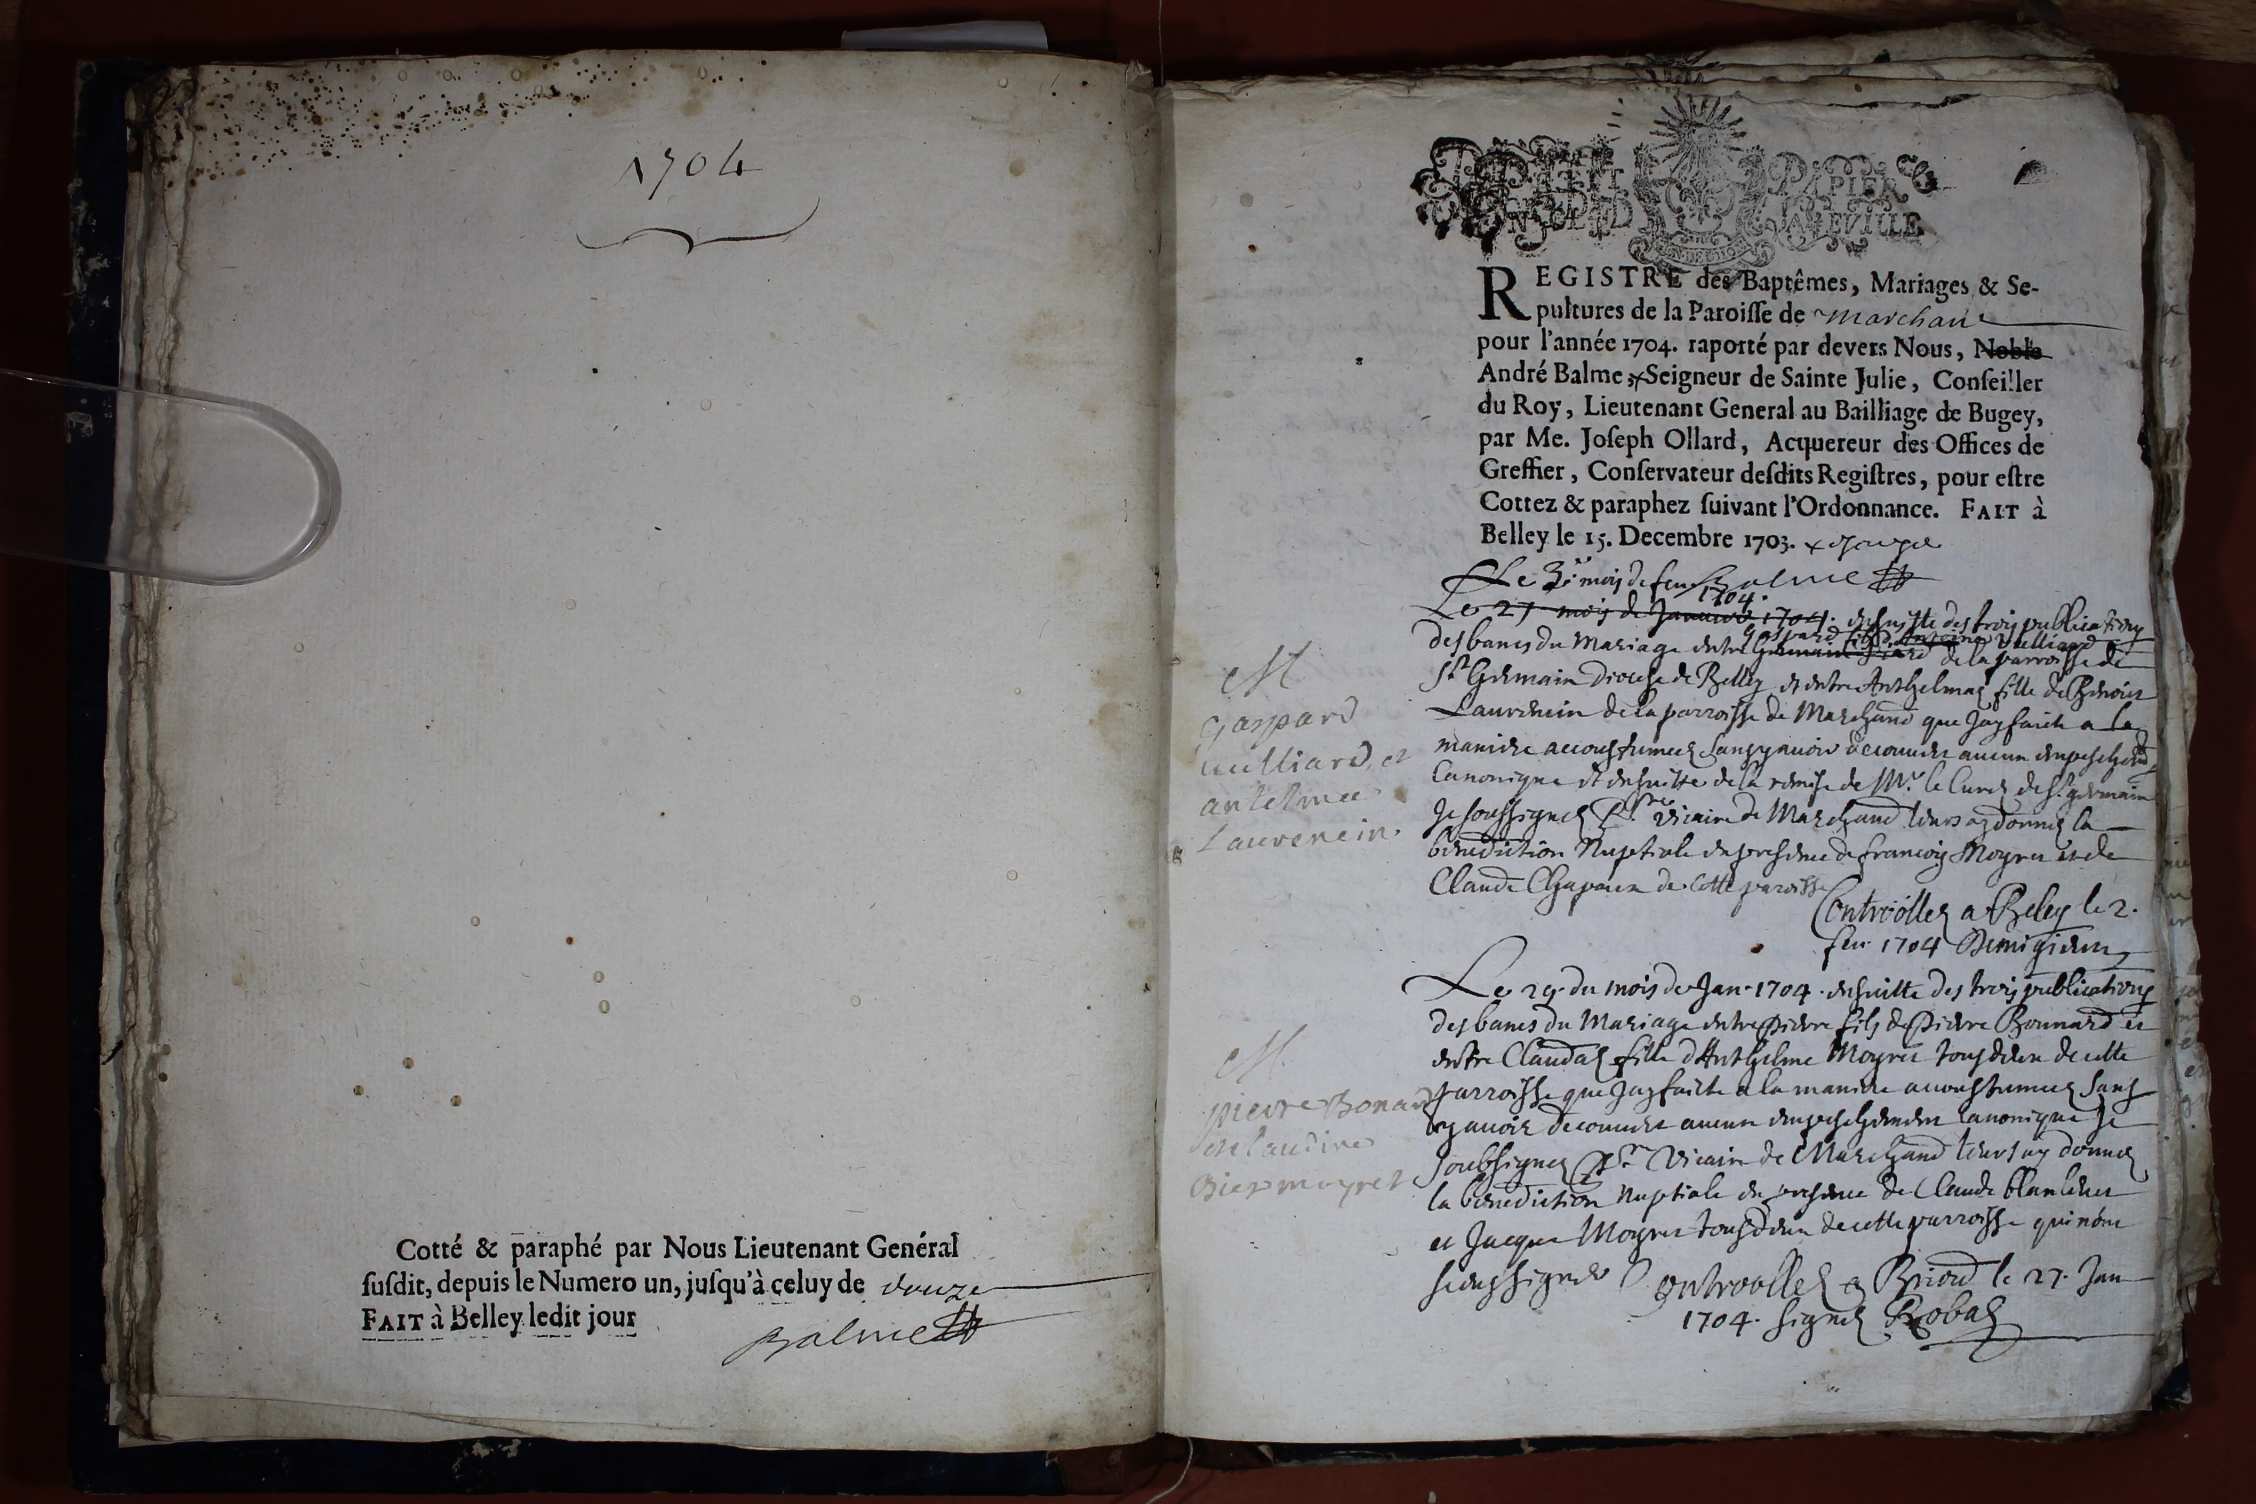 1704
Cotté & paraphé par Nous Lieutenant Genéral
susdit, depuis le Numero un, jusqu'à celuy de douze
FAIT à Belley ledit jour
Balme
PAPIER
REGISTRE des Baptêmes, Mariages & Se-
pultures de la Paroisse de Marchan
pour l'année 1704. raporté par devers Nous, Noble
André Balme, Seigneur de Sainte Julie, Conseiller
du Roy, Lieutenant General au Bailliage de Bugey,
par Me. Joseph Ollard, Acquereur des Offices de
Greffier, Conservateur desdits Registres, pour estre
Cottez & paraphez suivant l'Ordonnance. FAIT à
Belley le 15. Decembre 1703.
Le 3e mois de feu Balme
1704.
Le 27 mois de Janvier 1704. ensuitte des trois publications
des bancs du Mariage entre Gaspard fils d'Antoine Vulliard de la parroisse de
St Germain Diocese de Belley et entre Anthelmaz fille de Benoist
Laurencin de la parroisse de Marchand que Jay faicte a la
maniere accoustumee sans y avoir decouvert aucun empeschemt
Canonique et ensuitte de la remise de Mr. le Curé de St. germain
Je soussigné Ptre Vicaire de Marchand leurs ay donné la
benediction Nuptiale en presence de francois Moyret et de
Claude Chapoux de cette paroisse
Controllez a Beley le 2.
feu. 1704
M
Gaspard
vulliard, et
antelmee
Laurencin.
Le 29. du mois de Jan. 1704. ensuitte des trois publications
des bancs du Mariage entre Pierre fils de Pierre Bonnard et
entre Claudaz fille d'Anthelme Moyret tous deux de cette
parroisse que Jay faicte a la maniere accoustumee sans
y avoir decouvert aucun empeschement Canonique Je
soubsigné Ptre Vicaire de Marchand leurs ay donné
la benediction Nuptiale en presence de Claude
et Jacque Moyret tous deux de cette parroisse qui n'ont
sceu signer Controollez a Briord le 27. Jan
1704. signé Robaz
M.
pierre Bonard
et claudine
moyret